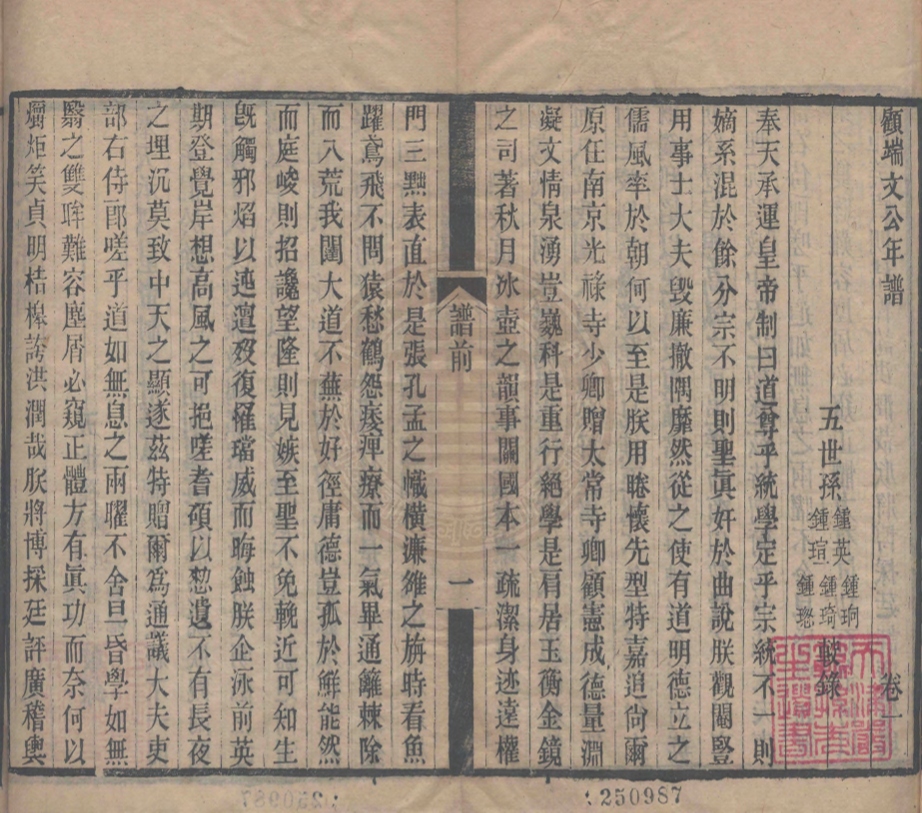 顧端文公年譜 卷一
五世孫 鍾英 鍾瑄 鍾珣 鍾琦 鍾璁 校錄
奉天承運皇帝制曰道尊乎統學定乎宗統不一則
嫡系混於餘分宗不明則聖眞奸於曲說朕觀閹豎
用事士大夫毀廉撤隅靡然從之使有道明德立之
儒風率於朝何以至是朕用睠懷先型特嘉追尙爾
原任南京光祿寺少卿贈太常寺卿顧憲成德量淵
凝文情泉湧豈巍科是重行絕學是肩居玉衡金鏡
之司著秋月冰壺之韻事關國本一疏潔身迹遠權
譜前 一
門三黜表直於是張孔孟之幟橫濂雒之旃時看魚
躍鳶飛不問猿愁鶴怨痿痺療而一氣畢通籬棘除
而八荒我闥大道不蕪於好徑庸德豈孤於鮮能然
而庭峻則招讒望隆則見嫉至聖不免輓近可知生
旣觸邪焰以迍邅歿復罹璫威而晦蝕朕企泳前英
期登覺岸想高風之可挹嗟耆碩以慭遺不有長夜
之埋沉莫致中天之顯遂茲特贈爾爲通議大夫吏
部右侍郎嗟乎道如無息之兩曜不舍旦昏學如無
翳之雙眸難容塵屑必窺正體方有眞功而奈何以
爝炬笑貞明桔槹誇洪潤哉朕將博採廷評廣稽輿
250987